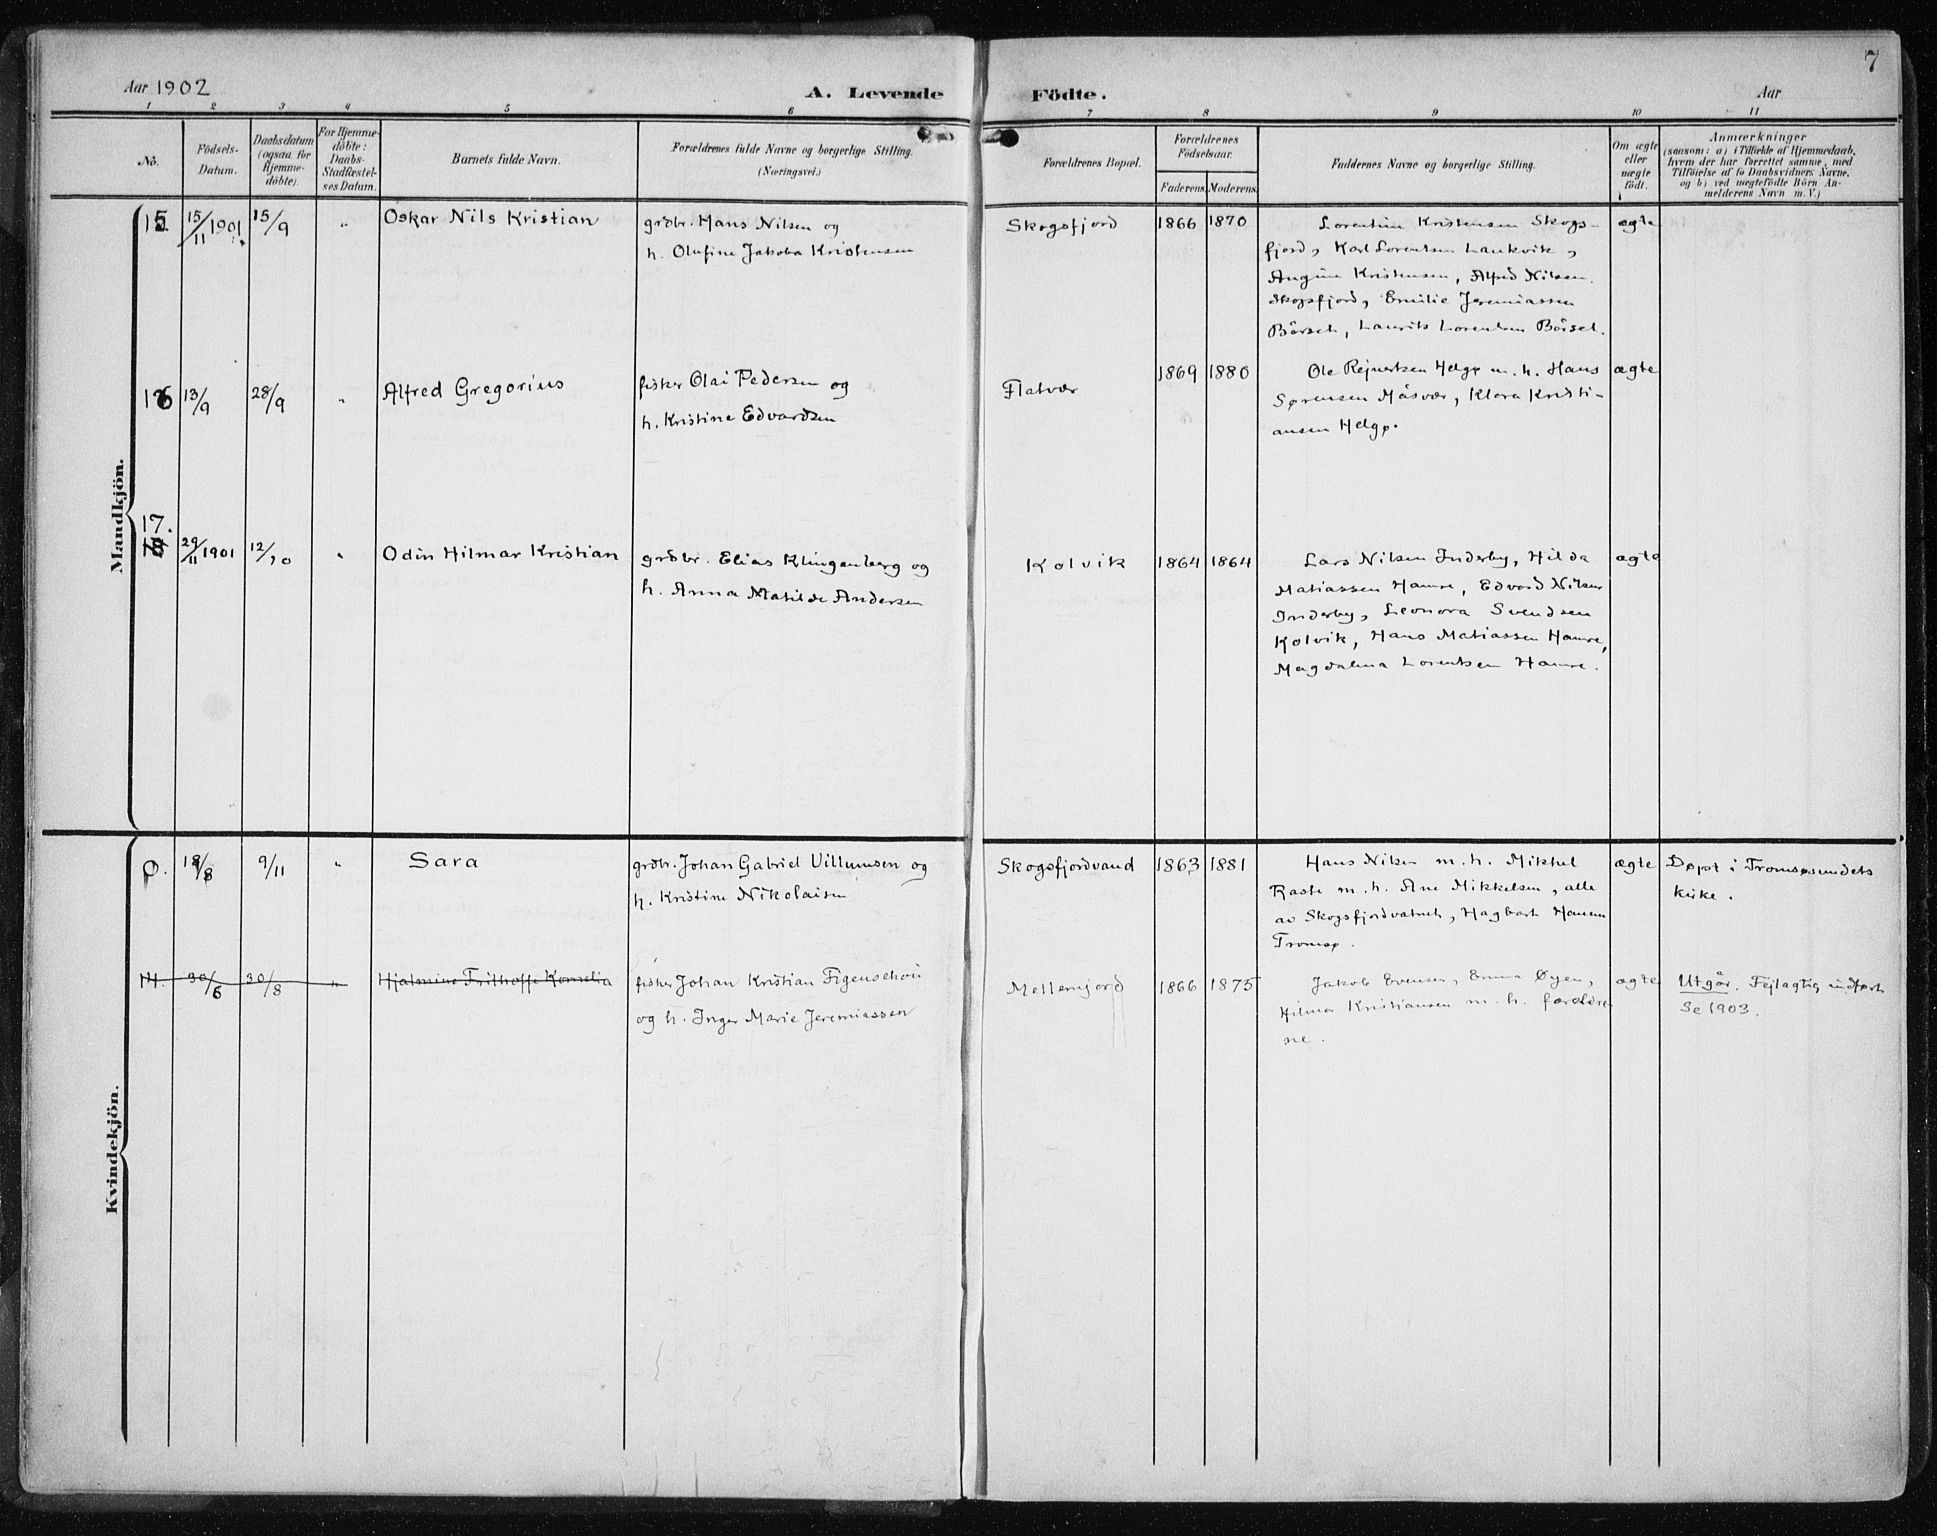 7
Aar 1902
A. Levende Födte.
Aar
1 2 3 4 5 6 7 8 9 10 11
No.
Födsels-
Datum.
Daabsdatum
(ogsaa for
Hjemme-
döbte).
For Hjemme-
döbte:
Daabs-
Stadfæstel-
ses Datum.
Barnets fulde Navn.
Forældrenes fulde Navne og borgerlige Stilling.
(Næringsvei.)
Forældrenes Bopæl.
Forældrenes
Födselsaar.
Faderens. Moderens.
Faddernes Navne og borgerlige Stilling.
Om ægte
eller
uægte
födt.
Anmærkninger
(saasom: a) i Tilfælde af Hjemmedaab,
hvem der har forrettet samme, med
Tilföielse af to Daabsvidners Navne,
og b) ved uægtefödte Börn An-
melderens Navn m. V.)
Mandkjön.
15 15/11 1901 15/9 " Oskar Nils Kristian
grdbr. Hans Nilsen og
h. Olufine Jakoba Kristensen
Skogsfjord 1866 1870
Lorentine Kristensen Skogs-
fjord, Karl Lorentsen Lankvik,
Angine Kristensen, Alfred Nilsen
Skogsfjord, Emilie Jeremiassen
Börset, Laurits Lorentsen Börset.
ægte
16 13/9 28/9 " Alfred Gregorius
fisker Olai Pedersen og
h. Kristine Edvardsen
Flatvær 1869 1880
Ole Rejnertsen Helgø m. h. Hans
Sørensen Måsvær, Klara Kristi-
ansen Helgø.
ægte
17.
29/11 1901 12/10 " Odin Hilmar Kristian
grdbr. Elias Klingenberg og
h. Anna Matilde Andersen
Kolvik 1864 1864
Lars Nilsen Inderby, Hilda
Matiassen Hamre, Edvard Nilsen
Inderby, Leonora Svendsen
Kolvik, Hans Matiassen Hamre,
Magdalena Lorentsen Hamre.
ægte
Kvindekjön.
18/8 9/11 " Sara
grdbr. Johan Gabriel Villumsen og
h. Kristine Nikolaisen
Skogsfjordvand 1863 1881
Hans Nilsen m. h. Mikkel
Raste m. h. Ane Mikkelsen, alle
av Skogsfjordvatnet, Hagbart Hansen
Tromsø.
ægte
Døpt i Tromsøsundets
kirke.
30/6 30/8 " Hjalmine Frithoffe Kornelia
fisker Johan Kristian Figenschou
og h. Inger Marie Jeremiassen
Mellemjord 1866 1875
Jakob Evensen, Emma Øyen,
Hilma Kristiansen m. h. forældre-
ne.
ægte
Utgår. Fejlagtig indført
Se 1903.